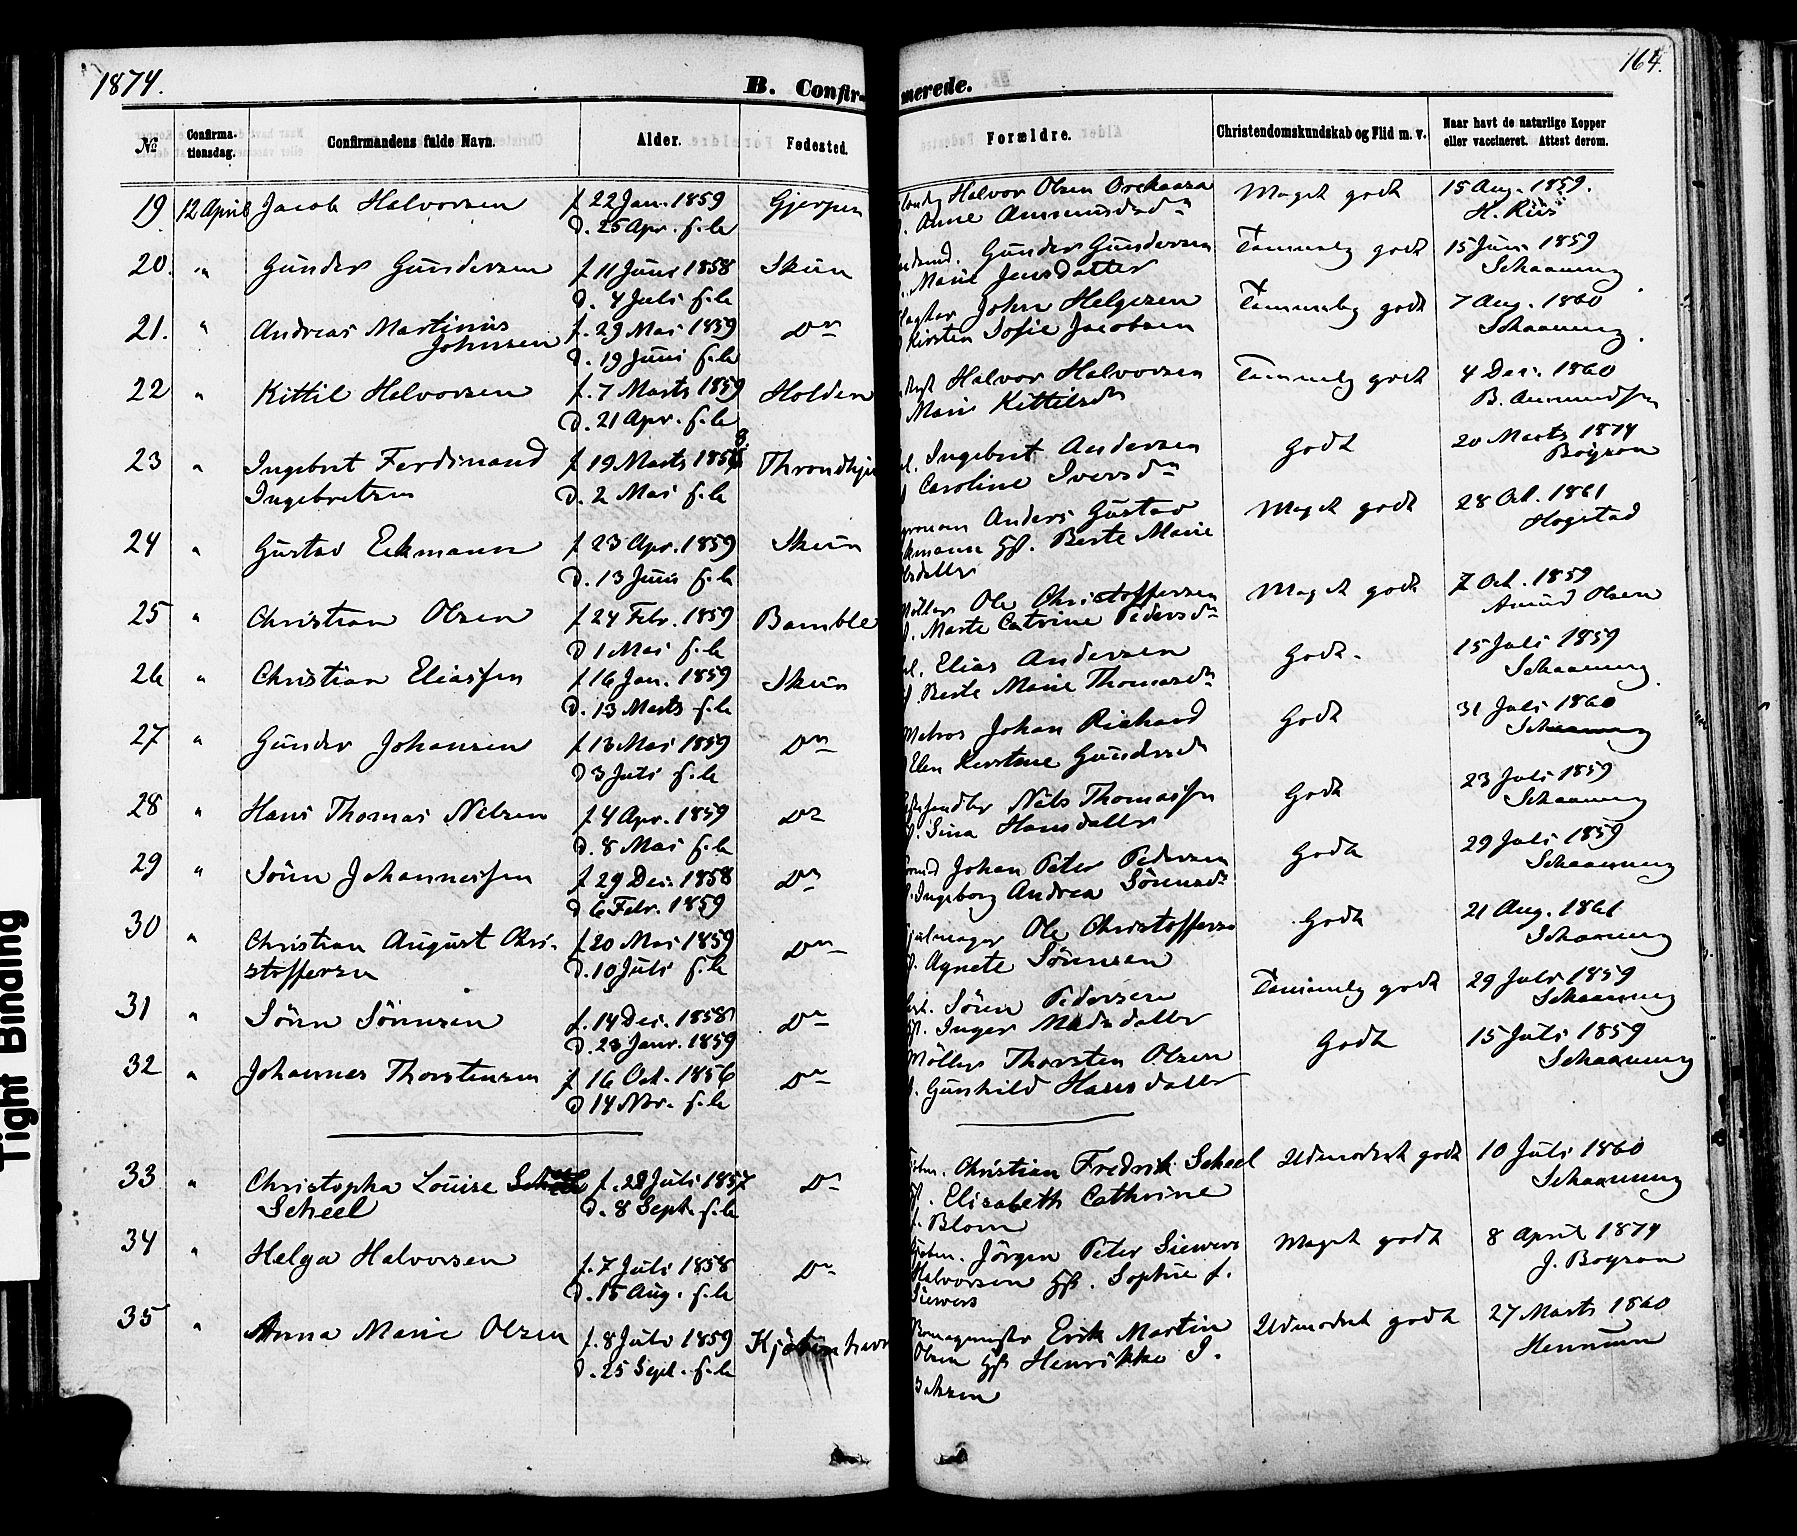 1874.
B. Confirmerede.
164.
№ Confirmationsdag. Confirmandens fulde Navn. Alder. Fødested. Forældre. Christendomskundskab og Flid m. v. Naar havt de naturlige Kopper eller vaccineret. Attest derom.
19 12 April Jacob Halvorsen f 22 Jan. 1859 Gjerpen Halvor Olsen Meget godt 15 Aug. 1859.
d. 25 Apr. s. a. Anne Ammundsdn H. Riis
20. " Gunder Gundersen f 11 Juni 1858 Skien Gunder Gundersen Temmelig godt 15 Juni 1859
d. 4 Juli s. a. Marie Jensdatter Schaanning
21. " Andreas Martinius f. 29 Mai 1859 Do John Helgesen Temmelig godt 7 Aug. 1860
Johnsen d. 19 Juni s. a. Kirsten Sofie Jacobsen Schaanning
22 " Kittil Halvorsen f. 7 Marts 1859 Holden Halvor Halvorsen Temmelig godt 4 Dec. 1860
d. 21 Apr. s. a. Mari Kittilsdr B. Aamundsen
23 " Ingebret Ferdinand f 19 Marts 1858 Throndhjem Ingebret Andersen Godt 20 Marts 1874
Ingebretsen d. 2 Mai s. a. Caroline Iversdn Boyson
24 " Gustav Eckmann f 23 Apr. 1859 Skien Anders Gustav Meget godt 28 Oct. 1861
d. 13 Juni s. a. Eckmann Hst. Berte Marie Hogstad
25 " Christian Olsen f 24 Febr. 1859 Bamble Møller Ole Christoffersen Meget godt 7 Oct. 1859
d 1 Mai s. a. Marte Catrine Pedersdn Amund Olsen
26 " Christian Eliassen f 16 Jan. 1859 Skien Elias Andersen Godt. 15 Juli 1859
d. 13 Marts s. a. Berte Marie Thomasdn Schaanning
27 " Gunder Johansen f 13 Mai 1859 Do Matros Johan Richard Godt 31 Juli 1860
d 3 Juli s. a. Elen Kirstine Gundersdr Schaanning
28 " Hans Thomas Nilsen f 4 Apr. 1859 Do Nils Thomassen Godt 23 Juli 1859
d. 8 Mai s. a. Sina Hansdatter Schaanning
29 " Søren Johannessen f 29 Dec. 1858 Do Johan Peter Pedersen Godt 29 Juli 1859
d 6 Febr. 1859 Ingeborg Andrea Sørensdr Schaanning
30 " Christian August Chri- f. 20 Mai 1859 Do Ole Christoffersen Godt 21 Aug. 1861
stoffersen d. 10 Juli s. a. Agnete Sørensen Schaanning
31 " Søren Sørensen f. 14 Dec. 1858 Do Søren Pedersen Temmelig godt 29 Juli 1859
d. 23 Janr. 1859 Hst. Inger Madsdatter Schaanning
32 " Johannes Thorstensen f 16 Oct. 1856 Do Møller Thorsten Olsen Godt 15 Juli 1859
d 14 Nov. s. a. Gunhild Hansdatter Schaanning
33 " Christopha Louise f. 22 Juli 1857 Do Christian Fredrik Scheel Udmærket godt 10 Juli 1860
Scheel d. 8 Sept. s. a. Hst. Elisabeth Cathrine Schaanning
f. Blom
34 " Helga Halvorsen f. 7 Juli 1858 Do Jørgen Peter Siewers Meget godt 8 April 1874
d. 15 Aug. s. a. Halvorsen Hst. Sophie f. J. Boyson
Siewers
35 " Anna Marie Olsen f. 8 Juli 1859 Kjøbenhavn Erik Martin Udmærket godt 27 Marts 1860
d. 25 Sept. s. a. Olsen Hst Henrikke I. Hennum
Tight Binding